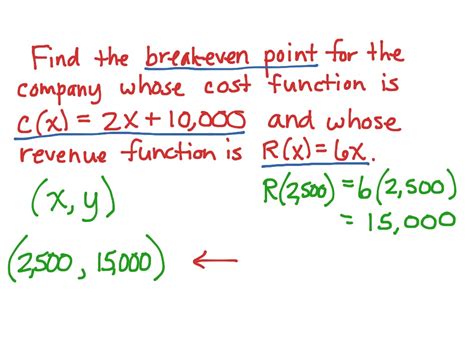 Find the breakeven point for the
company whose cost function is
C(x) = 2x + 10,000 and whose
revenue function is R(x) = 6x.
(x, y)
R(2,500) = 6(2,500)
= 15,000
(2,500, 15,000) ←